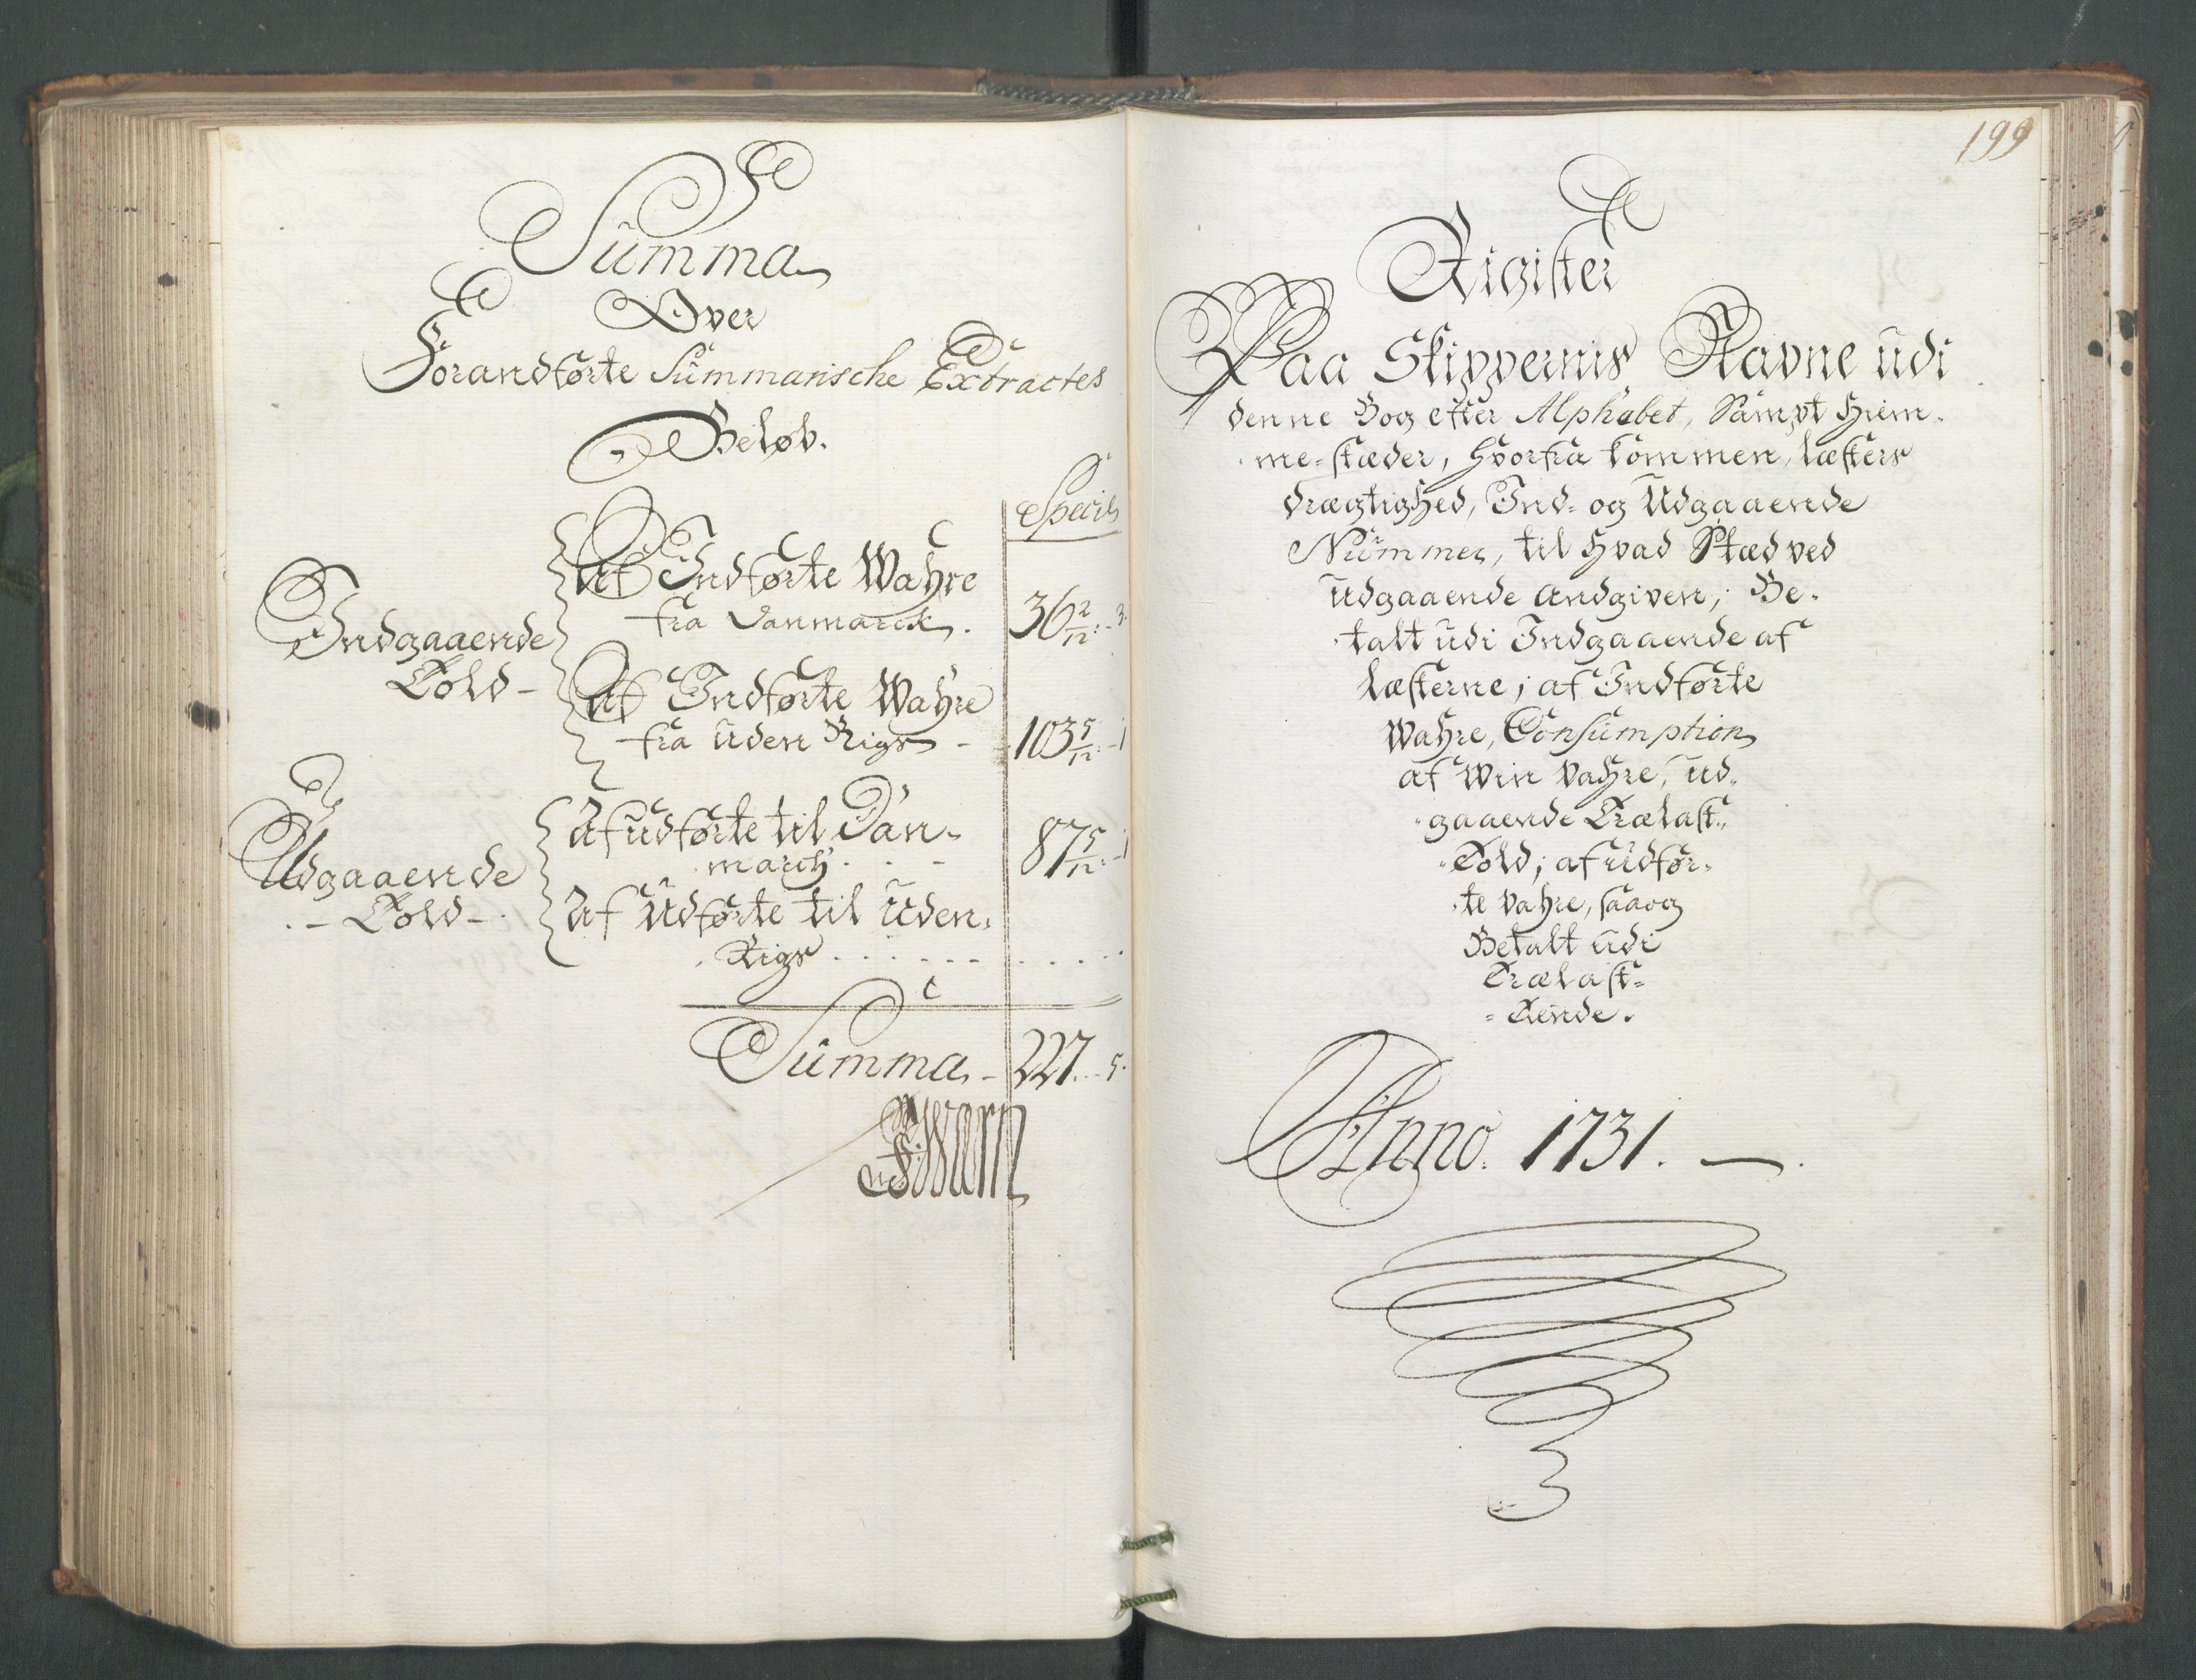 Summa
Over
Foranførte Summarische Extractes
Beløb.
Specis
Indgaaende
Told -
Af Indførte Wahre
fra Danmarck. 36 2/12: - 3.
Af Indførte Wahre
fra uden Rigs - 103 5/12: - 1
Udgaaende
- Told -
Af udførte til Dan-
march . . . 87 5/12: - 1
Af Udførte til Uden-
Rigs . . . . . .
Summa - 227. - 5.
199
Rigister
Paa Skippernis Navne udi
denne Bog efter Alphabet, Sampt Hiem-
me-stæder, Hvorfra kommen, læsters
drægtighed, Ind- og Udgaaende
Nummer, til Hvad Stæd ved
Udgaaende Andgiven; Be-
talt udi Indgaaende af
læsterne; af Indførte
Wahre, Consumption
af Win Vahre, ud-
gaaende Trælast-
Told; af Udför-
te Vahre, saaog
Betalt udi
Trælast-
Tiende.
Anno. 1731. -